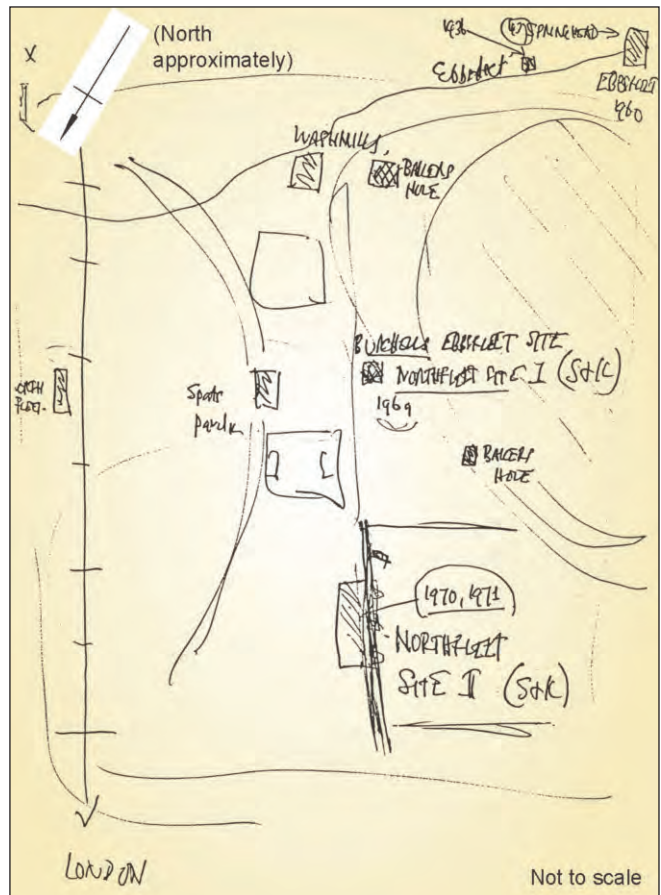 (North
approximately)
X
1936
SPRINGHEAD
Ebbsfleet
EBBSFLEET
1960
WASHMILLS,
BAKERS
HOLE
BURCHELLS EBBSFLEET SITE
NORTHFLEET SITE I (S&K)
1969
Sports
park
BAKERS
HOLE
1970, 1971
NORTHFLEET
SITE II (S&K)
LONDON
Not to scale